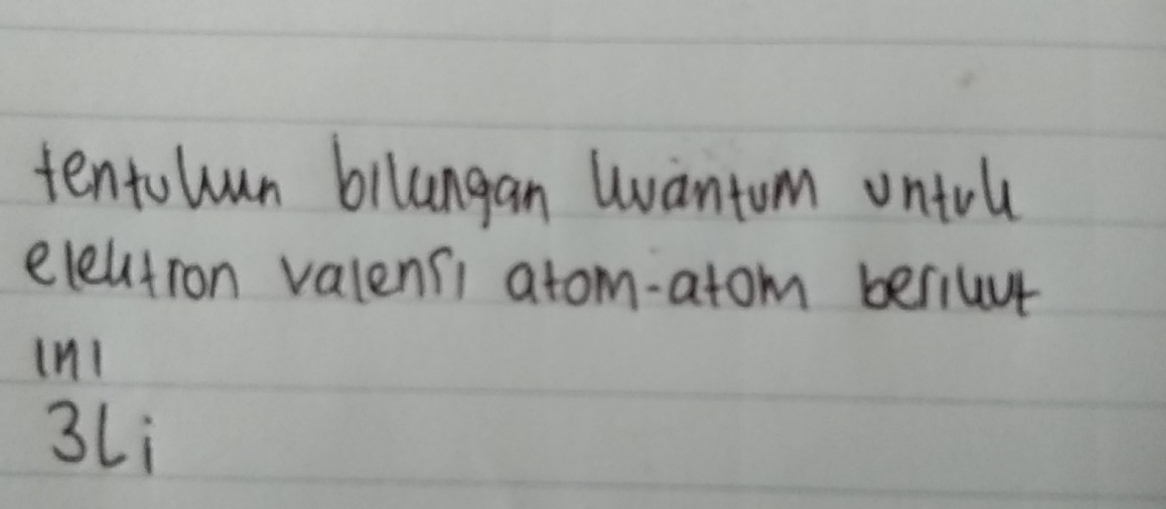 tentukan bilangan kuantum untuk
elektron valensi atom-atom berikut
ini
3Li